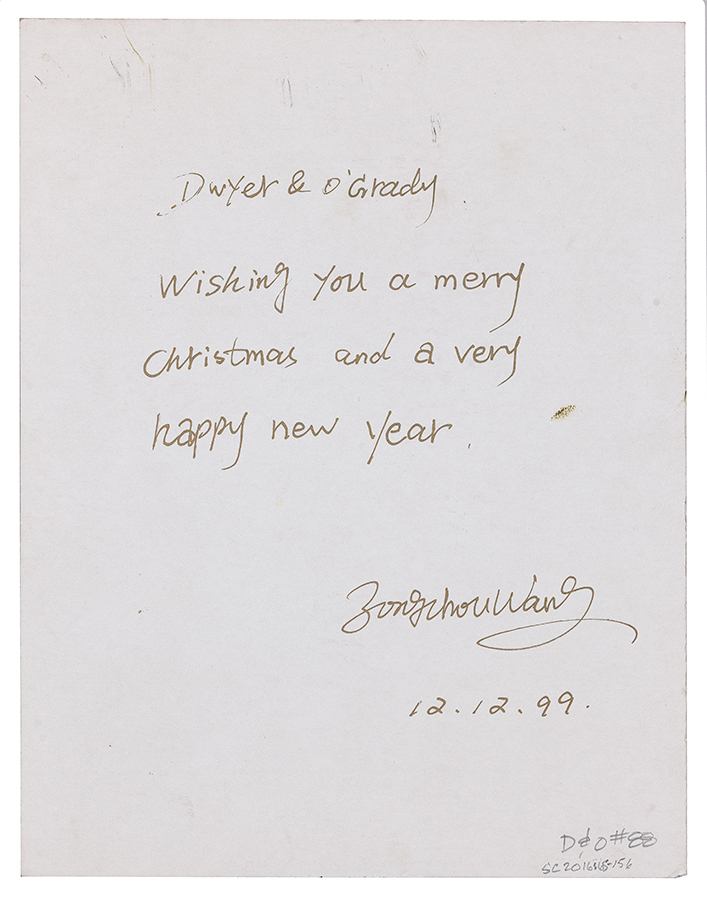 Dwyer & O'Grady
Wishing you a merry
Christmas and a very
happy new year.
Zongzhou Wang
12.12.99.
D&O #88